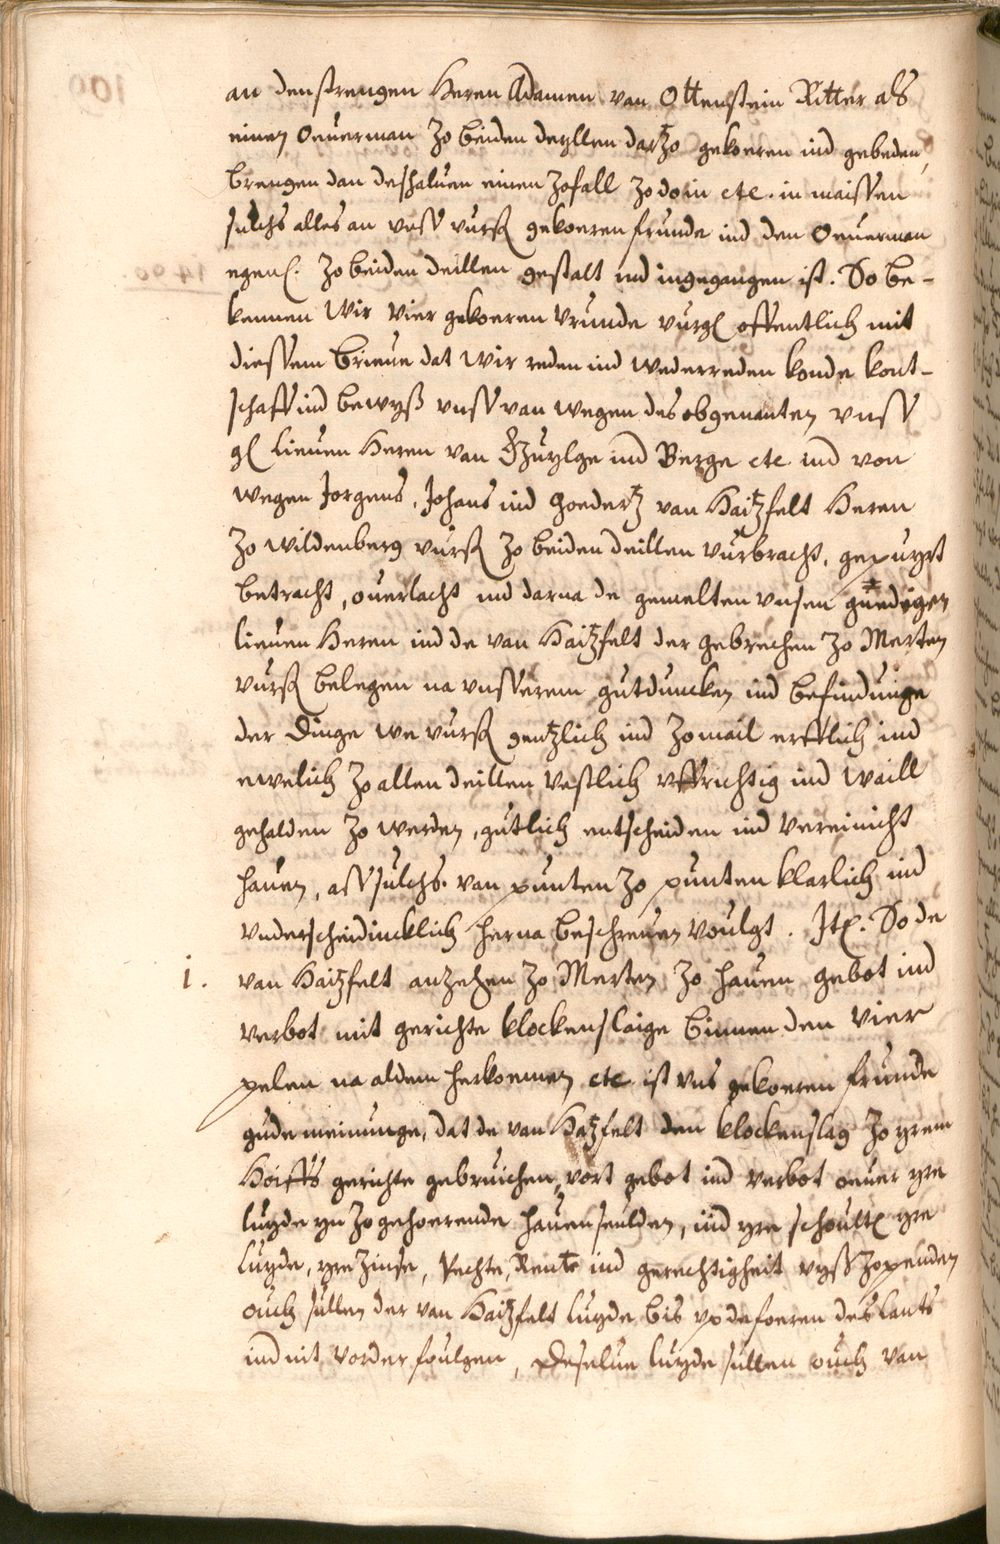 an den strengen Heren Adamen van Ottenstein Ritter als
einen Oeuerman zo beiden deyllen dartzo gekoeren ind gebeden,
brengen dan deshaluen einen zofall zo doin etc. in maissen
sulchs alles an unss vurß gekoeren frunde ind den Oeuerman
egen. zo beiden deillen gestalt ind ingegangen ist. So be-
kennen Wir vier gekoeren vrunde vurg offentlich mit
diessem brieue dat wir reden ind wederreden konde kont-
schaff ind bewyß vnss van wegen des obgenanten vnss
g lieuen Heren van Guylge ind Berge etc. ind von
wegen Jorgens, Johans ind Goedertz van Haitzfelt Heren
zo Wildenberg vurß zo beiden deillen vurbracht, gepuyrt
betracht, ouerlacht ind darna de gemelten vnsen gnedigen
lieuen Heren ind de van Haitzfelt der gebrechen zo Merten
vurß belegen na vnsserem gutduncken ind befindunge
der Dinge we vurß gentzlich ind zomail erfflich ind
ewelich zo allen deillen vestlich vffrichtig ind waill
gehalden zo werden, gutlich entscheiden ind vereinicht
hauen, ass sulchs van punten zo punten klarlich ind
vnderscheidincklich herna beschreuen voulgt. It. So de
1. van Haitzfelt anzehen zo Merten zo hauen gebot ind
verbot mit gerichte klockenslaige binnen den vier
pelen na aldem herkoemen etc. ist vns gekoeren frunde
gude meinunge, dat de van Hatzfelt den klockenslag zo yrem
Hoiffs gerichte gebruichen, vort gebot ind verbot oeuer yre
luyde yn zogehoerende hauen seulden, ind yre schoult yre
luyde, yre zinse, Pechte, Rente ind gerechtigheit vyss zopenden
ouch sullen der van Haitzfelt luyde bis vp de foeren des lants
ind nit vorder foulgen, Deselue luyde sullen ouch van